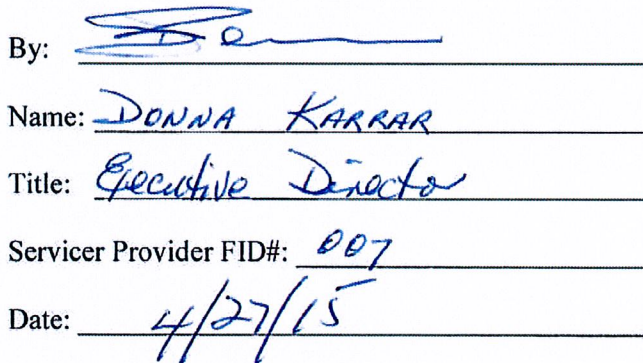 By:
Name: DONNA KARRAR
Title: Executive Director
Servicer Provider FID#: 007
Date: 4/27/15